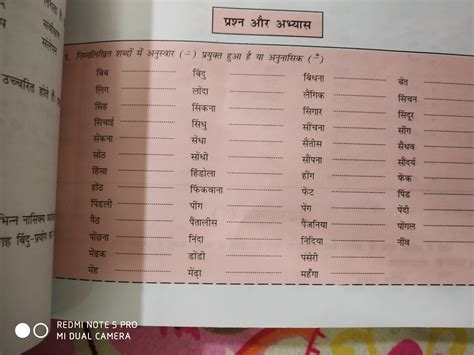 प्रश्न और अभ्यास
1. निम्नलिखित शब्दों में अनुस्वार (ं) प्रयुक्त हुआ है या अनुनासिक (ँ)
बिंब बिंदु बिंधना बेंत
लिंग लोंदा लैंगिक सिंचन
सिंह सिंकना सिंगार सिंदूर
सिंचाई सिंधु सींचना सींग
सेंकना सेंधा सैंतीस सैंधव
सोंठ सोंधी सौंपना सौंदर्य
हिंसा हिंडोला होंग फेंक
होंठ फिंकवाना फेंट पिंड
पिंडली पोंग पेंग पेंदी
पैंठ पैंतालीस पैंजनिया पोंगल
पोंछना निंदा निंदिया नींव
मेंढक डोंडी पंसेरी
मेंह मेंढ़ा महँगा
उच्चरित होते हैं
भिन्न नासिक्य
REDMI NOTE 5 PRO
MI DUAL CAMERA